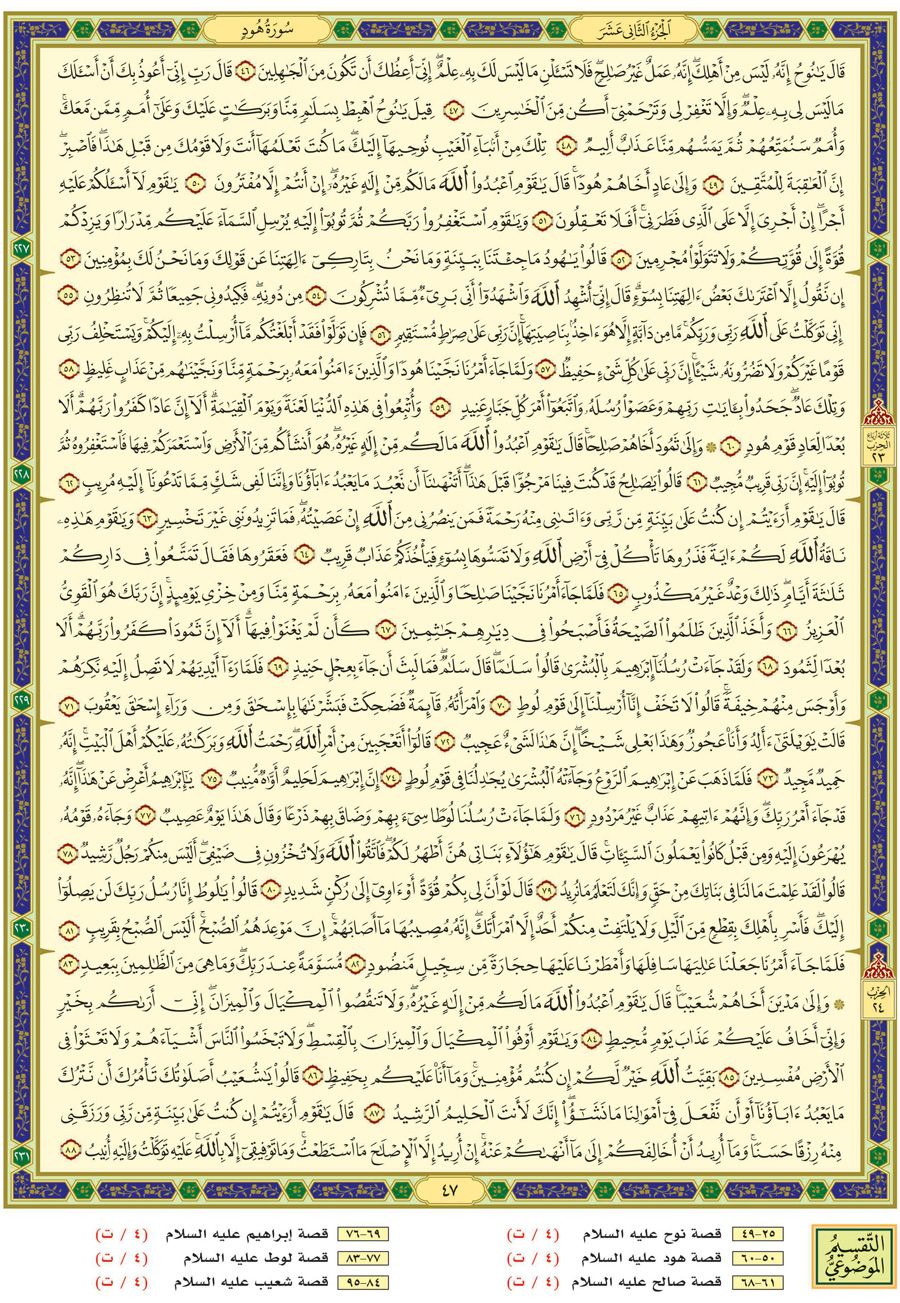 الجُزْءُ الثَّانِي عَشَرَ
سُورَةُ هُودٍ
قَالَ يَٰنُوحُ إِنَّهُۥ لَيۡسَ مِنۡ أَهۡلِكَۖ إِنَّهُۥ عَمَلٌ غَيۡرُ صَٰلِحٖۖ فَلَا تَسۡـَٔلۡنِ مَا لَيۡسَ لَكَ بِهِۦ عِلۡمٌۖ إِنِّيٓ أَعِظُكَ أَن تَكُونَ مِنَ ٱلۡجَٰهِلِينَ ٤٦ قَالَ رَبِّ إِنِّيٓ أَعُوذُ بِكَ أَنۡ أَسۡـَٔلَكَ
مَا لَيۡسَ لِي بِهِۦ عِلۡمٞۖ وَإِلَّا تَغۡفِرۡ لِي وَتَرۡحَمۡنِيٓ أَكُن مِّنَ ٱلۡخَٰسِرِينَ ٤٧ قِيلَ يَٰنُوحُ ٱهۡبِطۡ بِسَلَٰمٖ مِّنَّا وَبَرَكَٰتٍ عَلَيۡكَ وَعَلَىٰٓ أُمَمٖ مِّمَّن مَّعَكَۚ
وَأُمَمٞ سَنُمَتِّعُهُمۡ ثُمَّ يَمَسُّهُم مِّنَّا عَذَابٌ أَلِيمٞ ٤٨ تِلۡكَ مِنۡ أَنۢبَآءِ ٱلۡغَيۡبِ نُوحِيهَآ إِلَيۡكَۖ مَا كُنتَ تَعۡلَمُهَآ أَنتَ وَلَا قَوۡمُكَ مِن قَبۡلِ هَٰذَاۖ فَٱصۡبِرۡۖ
إِنَّ ٱلۡعَٰقِبَةَ لِلۡمُتَّقِينَ ٤٩ وَإِلَىٰ عَادٍ أَخَاهُمۡ هُودٗاۚ قَالَ يَٰقَوۡمِ ٱعۡبُدُواْ ٱللَّهَ مَا لَكُم مِّنۡ إِلَٰهٍ غَيۡرُهُۥٓۖ إِنۡ أَنتُمۡ إِلَّا مُفۡتَرُونَ ٥٠ يَٰقَوۡمِ لَآ أَسۡـَٔلُكُمۡ عَلَيۡهِ
أَجۡرًاۖ إِنۡ أَجۡرِيَ إِلَّا عَلَى ٱلَّذِي فَطَرَنِيٓۚ أَفَلَا تَعۡقِلُونَ ٥١ وَيَٰقَوۡمِ ٱسۡتَغۡفِرُواْ رَبَّكُمۡ ثُمَّ تُوبُوٓاْ إِلَيۡهِ يُرۡسِلِ ٱلسَّمَآءَ عَلَيۡكُم مِّدۡرَارٗا وَيَزِدۡكُمۡ
قُوَّةً إِلَىٰ قُوَّتِكُمۡ وَلَا تَتَوَلَّوۡاْ مُجۡرِمِينَ ٥٢ قَالُواْ يَٰهُودُ مَا جِئۡتَنَا بِبَيِّنَةٖ وَمَا نَحۡنُ بِتَارِكِيٓ ءَالِهَتِنَا عَن قَوۡلِكَ وَمَا نَحۡنُ لَكَ بِمُؤۡمِنِينَ ٥٣
إِن نَّقُولُ إِلَّا ٱعۡتَرَىٰكَ بَعۡضُ ءَالِهَتِنَا بِسُوٓءٖۗ قَالَ إِنِّيٓ أُشۡهِدُ ٱللَّهَ وَٱشۡهَدُوٓاْ أَنِّي بَرِيٓءٞ مِّمَّا تُشۡرِكُونَ ٥٤ مِن دُونِهِۦۖ فَكِيدُونِي جَمِيعٗا ثُمَّ لَا تُنظِرُونِ ٥٥
إِنِّي تَوَكَّلۡتُ عَلَى ٱللَّهِ رَبِّي وَرَبِّكُمۚ مَّا مِن دَآبَّةٍ إِلَّا هُوَ ءَاخِذُۢ بِنَاصِيَتِهَآۚ إِنَّ رَبِّي عَلَىٰ صِرَٰطٖ مُّسۡتَقِيمٖ ٥٦ فَإِن تَوَلَّوۡاْ فَقَدۡ أَبۡلَغۡتُكُم مَّآ أُرۡسِلۡتُ بِهِۦٓ إِلَيۡكُمۡۚ وَيَسۡتَخۡلِفُ رَبِّي
قَوۡمًا غَيۡرَكُمۡ وَلَا تَضُرُّونَهُۥ شَيۡـًٔاۚ إِنَّ رَبِّي عَلَىٰ كُلِّ شَيۡءٍ حَفِيظٞ ٥٧ وَلَمَّا جَآءَ أَمۡرُنَا نَجَّيۡنَا هُودٗا وَٱلَّذِينَ ءَامَنُواْ مَعَهُۥ بِرَحۡمَةٖ مِّنَّا وَنَجَّيۡنَٰهُم مِّنۡ عَذَابٍ غَلِيظٖ ٥٨
وَتِلۡكَ عَادٞۖ جَحَدُواْ بِـَٔايَٰتِ رَبِّهِمۡ وَعَصَوۡاْ رُسُلَهُۥ وَٱتَّبَعُوٓاْ أَمۡرَ كُلِّ جَبَّارٍ عَنِيدٖ ٥٩ وَأُتۡبِعُواْ فِي هَٰذِهِ ٱلدُّنۡيَا لَعۡنَةٗ وَيَوۡمَ ٱلۡقِيَٰمَةِۗ أَلَآ إِنَّ عَادٗا كَفَرُواْ رَبَّهُمۡۗ أَلَا
بُعۡدٗا لِّعَادٖ قَوۡمِ هُودٖ ٦٠ ۞ وَإِلَىٰ ثَمُودَ أَخَاهُمۡ صَٰلِحٗاۚ قَالَ يَٰقَوۡمِ ٱعۡبُدُواْ ٱللَّهَ مَا لَكُم مِّنۡ إِلَٰهٍ غَيۡرُهُۥۖ هُوَ أَنشَأَكُم مِّنَ ٱلۡأَرۡضِ وَٱسۡتَعۡمَرَكُمۡ فِيهَا فَٱسۡتَغۡفِرُوهُ ثُمَّ
تُوبُوٓاْ إِلَيۡهِۚ إِنَّ رَبِّي قَرِيبٞ مُّجِيبٞ ٦١ قَالُواْ يَٰصَٰلِحُ قَدۡ كُنتَ فِينَا مَرۡجُوّٗا قَبۡلَ هَٰذَآۖ أَتَنۡهَىٰنَآ أَن نَّعۡبُدَ مَا يَعۡبُدُ ءَابَآؤُنَا وَإِنَّنَا لَفِي شَكّٖ مِّمَّا تَدۡعُونَآ إِلَيۡهِ مُرِيبٖ ٦٢
قَالَ يَٰقَوۡمِ أَرَءَيۡتُمۡ إِن كُنتُ عَلَىٰ بَيِّنَةٖ مِّن رَّبِّي وَءَاتَىٰنِي مِنۡهُ رَحۡمَةٗ فَمَن يَنصُرُنِي مِنَ ٱللَّهِ إِنۡ عَصَيۡتُهُۥۖ فَمَا تَزِيدُونَنِي غَيۡرَ تَخۡسِيرٖ ٦٣ وَيَٰقَوۡمِ هَٰذِهِۦ
نَاقَةُ ٱللَّهِ لَكُمۡ ءَايَةٗۖ فَذَرُوهَا تَأۡكُلۡ فِيٓ أَرۡضِ ٱللَّهِۖ وَلَا تَمَسُّوهَا بِسُوٓءٖ فَيَأۡخُذَكُمۡ عَذَابٞ قَرِيبٞ ٦٤ فَعَقَرُوهَا فَقَالَ تَمَتَّعُواْ فِي دَارِكُمۡ
ثَلَٰثَةَ أَيَّامٖۖ ذَٰلِكَ وَعۡدٌ غَيۡرُ مَكۡذُوبٖ ٦٥ فَلَمَّا جَآءَ أَمۡرُنَا نَجَّيۡنَا صَٰلِحٗا وَٱلَّذِينَ ءَامَنُواْ مَعَهُۥ بِرَحۡمَةٖ مِّنَّا وَمِنۡ خِزۡيِ يَوۡمِئِذٍۚ إِنَّ رَبَّكَ هُوَ ٱلۡقَوِيُّ
ٱلۡعَزِيزُ ٦٦ وَأَخَذَ ٱلَّذِينَ ظَلَمُواْ ٱلصَّيۡحَةُ فَأَصۡبَحُواْ فِي دِيَٰرِهِمۡ جَٰثِمِينَ ٦٧ كَأَن لَّمۡ يَغۡنَوۡاْ فِيهَآۗ أَلَآ إِنَّ ثَمُودَاْ كَفَرُواْ رَبَّهُمۡۗ أَلَا
بُعۡدٗا لِّثَمُودَ ٦٨ وَلَقَدۡ جَآءَتۡ رُسُلُنَآ إِبۡرَٰهِيمَ بِٱلۡبُشۡرَىٰ قَالُواْ سَلَٰمٗاۖ قَالَ سَلَٰمٞۖ فَمَا لَبِثَ أَن جَآءَ بِعِجۡلٍ حَنِيذٖ ٦٩ فَلَمَّا رَءَآ أَيۡدِيَهُمۡ لَا تَصِلُ إِلَيۡهِ نَكِرَهُمۡ
وَأَوۡجَسَ مِنۡهُمۡ خِيفَةٗۚ قَالُواْ لَا تَخَفۡ إِنَّآ أُرۡسِلۡنَآ إِلَىٰ قَوۡمِ لُوطٖ ٧٠ وَٱمۡرَأَتُهُۥ قَآئِمَةٞ فَضَحِكَتۡ فَبَشَّرۡنَٰهَا بِإِسۡحَٰقَ وَمِن وَرَآءِ إِسۡحَٰقَ يَعۡقُوبَ ٧١
قَالَتۡ يَٰوَيۡلَتَىٰٓ ءَأَلِدُ وَأَنَا۠ عَجُوزٞ وَهَٰذَا بَعۡلِي شَيۡخًاۖ إِنَّ هَٰذَا لَشَيۡءٌ عَجِيبٞ ٧٢ قَالُوٓاْ أَتَعۡجَبِينَ مِنۡ أَمۡرِ ٱللَّهِۖ رَحۡمَتُ ٱللَّهِ وَبَرَكَٰتُهُۥ عَلَيۡكُمۡ أَهۡلَ ٱلۡبَيۡتِۚ إِنَّهُۥ
حَمِيدٞ مَّجِيدٞ ٧٣ فَلَمَّا ذَهَبَ عَنۡ إِبۡرَٰهِيمَ ٱلرَّوۡعُ وَجَآءَتۡهُ ٱلۡبُشۡرَىٰ يُجَٰدِلُنَا فِي قَوۡمِ لُوطٍ ٧٤ إِنَّ إِبۡرَٰهِيمَ لَحَلِيمٌ أَوَّٰهٞ مُّنِيبٞ ٧٥ يَٰٓإِبۡرَٰهِيمُ أَعۡرِضۡ عَنۡ هَٰذَآۖ إِنَّهُۥ
قَدۡ جَآءَ أَمۡرُ رَبِّكَۖ وَإِنَّهُمۡ ءَاتِيهِمۡ عَذَابٌ غَيۡرُ مَرۡدُودٖ ٧٦ وَلَمَّا جَآءَتۡ رُسُلُنَا لُوطٗا سِيٓءَ بِهِمۡ وَضَاقَ بِهِمۡ ذَرۡعٗا وَقَالَ هَٰذَا يَوۡمٌ عَصِيبٞ ٧٧ وَجَآءَهُۥ قَوۡمُهُۥ
يُهۡرَعُونَ إِلَيۡهِ وَمِن قَبۡلُ كَانُواْ يَعۡمَلُونَ ٱلسَّيِّـَٔاتِۚ قَالَ يَٰقَوۡمِ هَٰٓؤُلَآءِ بَنَاتِي هُنَّ أَطۡهَرُ لَكُمۡۖ فَٱتَّقُواْ ٱللَّهَ وَلَا تُخۡزُونِ فِي ضَيۡفِيٓۖ أَلَيۡسَ مِنكُمۡ رَجُلٞ رَّشِيدٞ ٧٨
قَالُواْ لَقَدۡ عَلِمۡتَ مَا لَنَا فِي بَنَاتِكَ مِنۡ حَقّٖ وَإِنَّكَ لَتَعۡلَمُ مَا نُرِيدُ ٧٩ قَالَ لَوۡ أَنَّ لِي بِكُمۡ قُوَّةً أَوۡ ءَاوِيٓ إِلَىٰ رُكۡنٖ شَدِيدٖ ٨٠ قَالُواْ يَٰلُوطُ إِنَّا رُسُلُ رَبِّكَ لَن يَصِلُوٓاْ
إِلَيۡكَۖ فَأَسۡرِ بِأَهۡلِكَ بِقِطۡعٖ مِّنَ ٱلَّيۡلِ وَلَا يَلۡتَفِتۡ مِنكُمۡ أَحَدٌ إِلَّا ٱمۡرَأَتَكَۖ إِنَّهُۥ مُصِيبُهَا مَآ أَصَابَهُمۡۚ إِنَّ مَوۡعِدَهُمُ ٱلصُّبۡحُۚ أَلَيۡسَ ٱلصُّبۡحُ بِقَرِيبٖ ٨١
فَلَمَّا جَآءَ أَمۡرُنَا جَعَلۡنَا عَٰلِيَهَا سَافِلَهَا وَأَمۡطَرۡنَا عَلَيۡهَا حِجَارَةٗ مِّن سِجِّيلٖ مَّنضُودٖ ٨٢ مُّسَوَّمَةً عِندَ رَبِّكَۖ وَمَا هِيَ مِنَ ٱلظَّٰلِمِينَ بِبَعِيدٖ ٨٣
۞ وَإِلَىٰ مَدۡيَنَ أَخَاهُمۡ شُعَيۡبٗاۚ قَالَ يَٰقَوۡمِ ٱعۡبُدُواْ ٱللَّهَ مَا لَكُم مِّنۡ إِلَٰهٍ غَيۡرُهُۥۖ وَلَا تَنقُصُواْ ٱلۡمِكۡيَالَ وَٱلۡمِيزَانَۖ إِنِّيٓ أَرَىٰكُم بِخَيۡرٖ
وَإِنِّيٓ أَخَافُ عَلَيۡكُمۡ عَذَابَ يَوۡمٖ مُّحِيطٖ ٨٤ وَيَٰقَوۡمِ أَوۡفُواْ ٱلۡمِكۡيَالَ وَٱلۡمِيزَانَ بِٱلۡقِسۡطِۖ وَلَا تَبۡخَسُواْ ٱلنَّاسَ أَشۡيَآءَهُمۡ وَلَا تَعۡثَوۡاْ فِي
ٱلۡأَرۡضِ مُفۡسِدِينَ ٨٥ بَقِيَّتُ ٱللَّهِ خَيۡرٞ لَّكُمۡ إِن كُنتُم مُّؤۡمِنِينَۚ وَمَآ أَنَا۠ عَلَيۡكُم بِحَفِيظٖ ٨٦ قَالُواْ يَٰشُعَيۡبُ أَصَلَوٰتُكَ تَأۡمُرُكَ أَن نَّتۡرُكَ
مَا يَعۡبُدُ ءَابَآؤُنَآ أَوۡ أَن نَّفۡعَلَ فِيٓ أَمۡوَٰلِنَا مَا نَشَٰٓؤُاْۖ إِنَّكَ لَأَنتَ ٱلۡحَلِيمُ ٱلرَّشِيدُ ٨٧ قَالَ يَٰقَوۡمِ أَرَءَيۡتُمۡ إِن كُنتُ عَلَىٰ بَيِّنَةٖ مِّن رَّبِّي وَرَزَقَنِي
مِنۡهُ رِزۡقًا حَسَنٗاۚ وَمَآ أُرِيدُ أَنۡ أُخَالِفَكُمۡ إِلَىٰ مَآ أَنۡهَىٰكُمۡ عَنۡهُۚ إِنۡ أُرِيدُ إِلَّا ٱلۡإِصۡلَٰحَ مَا ٱسۡتَطَعۡتُۚ وَمَا تَوۡفِيقِيٓ إِلَّا بِٱللَّهِۚ عَلَيۡهِ تَوَكَّلۡتُ وَإِلَيۡهِ أُنِيبُ ٨٨
ثلاثة أرباع
الحزب
٢٣
الحزب
٢٤
٢٢٧
٢٢٨
٢٢٩
٢٣٠
٢٣١
٤٧
التَّقسِيمُ
المَوضُوعِيُّ
٢٥-٤٩ قصة نوح عليه السلام (٤ / ت)
٥٠-٦٠ قصة هود عليه السلام (٤ / ت)
٦١-٦٨ قصة صالح عليه السلام (٤ / ت)
٦٩-٧٦ قصة إبراهيم عليه السلام (٤ / ت)
٧٧-٨٣ قصة لوط عليه السلام (٤ / ت)
٨٤-٩٥ قصة شعيب عليه السلام (٤ / ت)